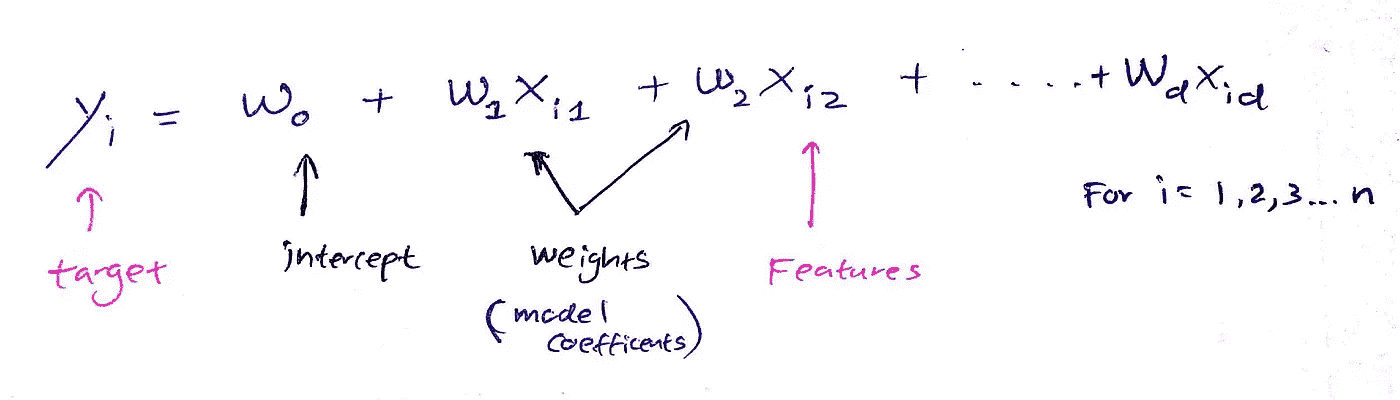 yᵢ = w₀ + w₁xᵢ₁ + w₂xᵢ₂ + ..... + w_d x_id
For i = 1,2,3... n
target
intercept
weights
(model
coefficents)
Features